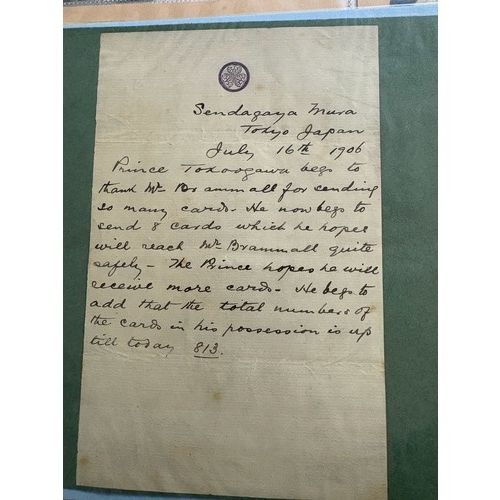 Sendagaya Mura
Tokyo Japan
July 16th 1906
Prince Tokoogawa begs to
thank Mr Brammall for sending
so many cards - He now begs to
send 8 cards which he hopes
will reach Mr Brammall quite
safely - The Prince hopes he will
receive more cards - He begs to
add that the total numbers of
the cards in his possession is up
till today 813.